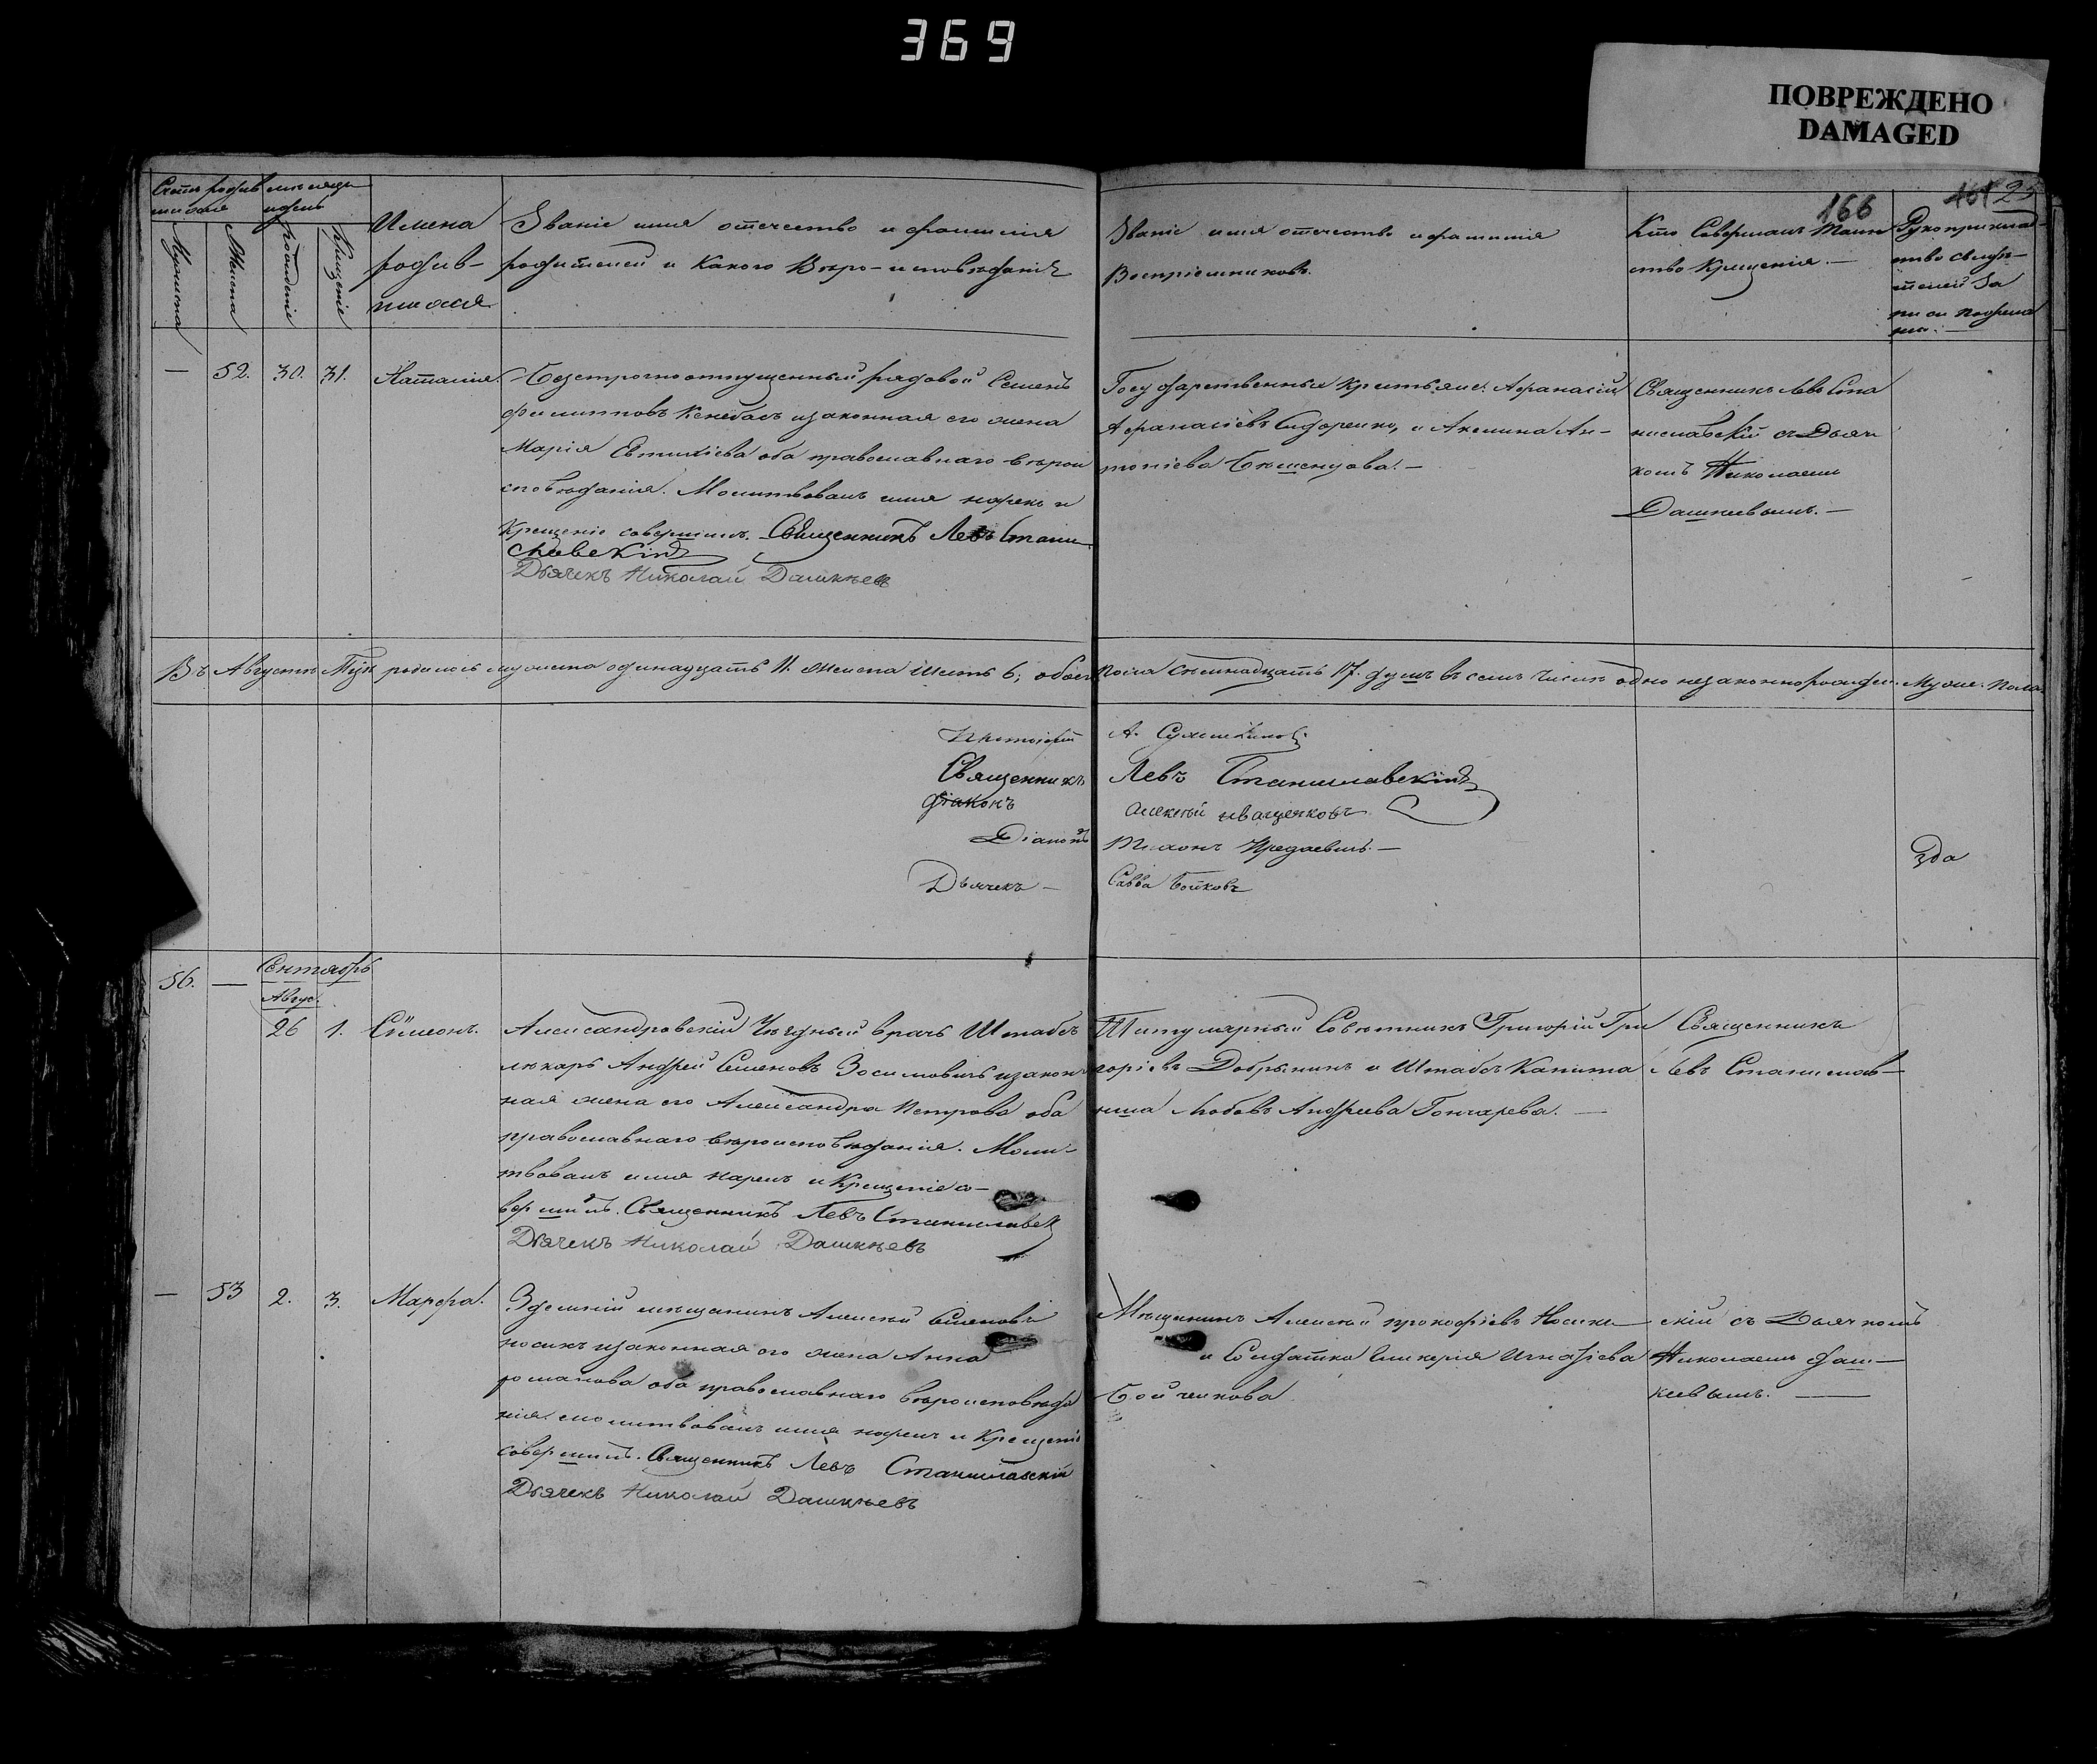 369
ПОВРЕЖДЕНО
DAMAGED
166
Имена
родив-
шихся
Званіе имя отечество и фамилія
родителей и Какого Вѣро-исповѣданія
Мужеска
Женска
рожденіе
Крещеніе
Званіе имя отечество и фамилія
Воспріемниковъ.
Кто Совершалъ Таин
ство Крещенія.—
Рукоприклад
ство свидѣ-
телей За
писи по желан
— 52. 30. 31. Наталія.
Безсрочноотпущенный рядовой Семенъ
Филиповъ изаконная его жена
Марія Евтихіева оба православнаго вѣрои
сповѣданія. Молитвовалъ имя нарекъ и
Крещеніе совершилъ. Священникъ Левъ Стани
славскій
Дьячекъ Николай Дашкѣевъ
Государственные крестьяне: Афанасій
Афанасіевъ Сидоренко, и Акилина Ан-
тоніева
Священникъ Левъ Ста
ниславскій съ Дьяч
комъ Николаемъ
Дашкеевымъ.—
Въ Августѣ М-цѣ родилось мужеска одинадцать 11. женска шесть 6; обоего пола семнадцать 17. душъ въ семъ числѣ одно незаконнорожден. Муже. пола.
А.
Священникъ Левъ Станиславскій
діаконъ Алексѣй Иващенковъ
Діаконъ Тихонъ
Дьячекъ — Савва Бойковъ
56. — Сентябрь
Авгус.
26 1. Сѵмеонъ.
Александровскій Уѣздный врачь Штабсъ
лѣкарь Андрей Семеновъ Зосимовичь изакон
ная жена его Александра Петрова оба
православнаго вѣроисповѣданія. Моли-
твовалъ имя нарекъ и Крещеніе со-
вершилъ. Священникъ Левъ Станиславск
Дьячекъ Николай Дашкѣевъ
Титулярный Совѣтникъ Григорій Гри
горіевъ Добрынинъ и Штабсъ Капита
нша Любовь Андреева Гончарева.—
Священникъ
Левъ Станислав-
— 53 2. 3. Марфа.
Здешній мѣщанинъ Алексѣй Семеновъ
Носикъ изаконная его жена Анна
романова оба православнаго вѣроисповѣда
нія. молитвовалъ имя нарекъ и Крещеніе
совершилъ. Священникъ Левъ Станиславскій
Дьячекъ Николай Дашкѣевъ
Мѣщанинъ Алексѣй прокофіевъ Носикъ
и Солдатка Гликерія Игнатіева
Бойченкова
скій съ Дьячкомъ
Николаемъ Даш-
кеевымъ.—